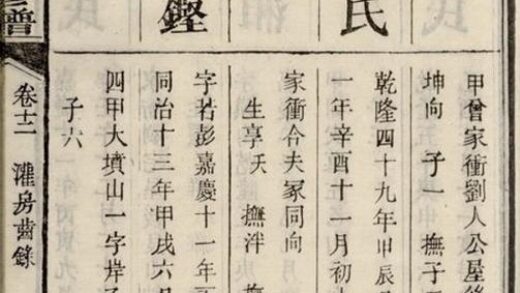 甲曾家衝劉人公屋後
坤向 子一 撫子
氏
乾隆四十九年甲辰
一年辛酉十一月初
家衝合夫冢同向
生享夭 撫泮 撫
鏗
字若彭嘉慶十一年
同治十三年甲戌六月
四甲大墳山一字岸
子六
卷十二 灌房齒錄